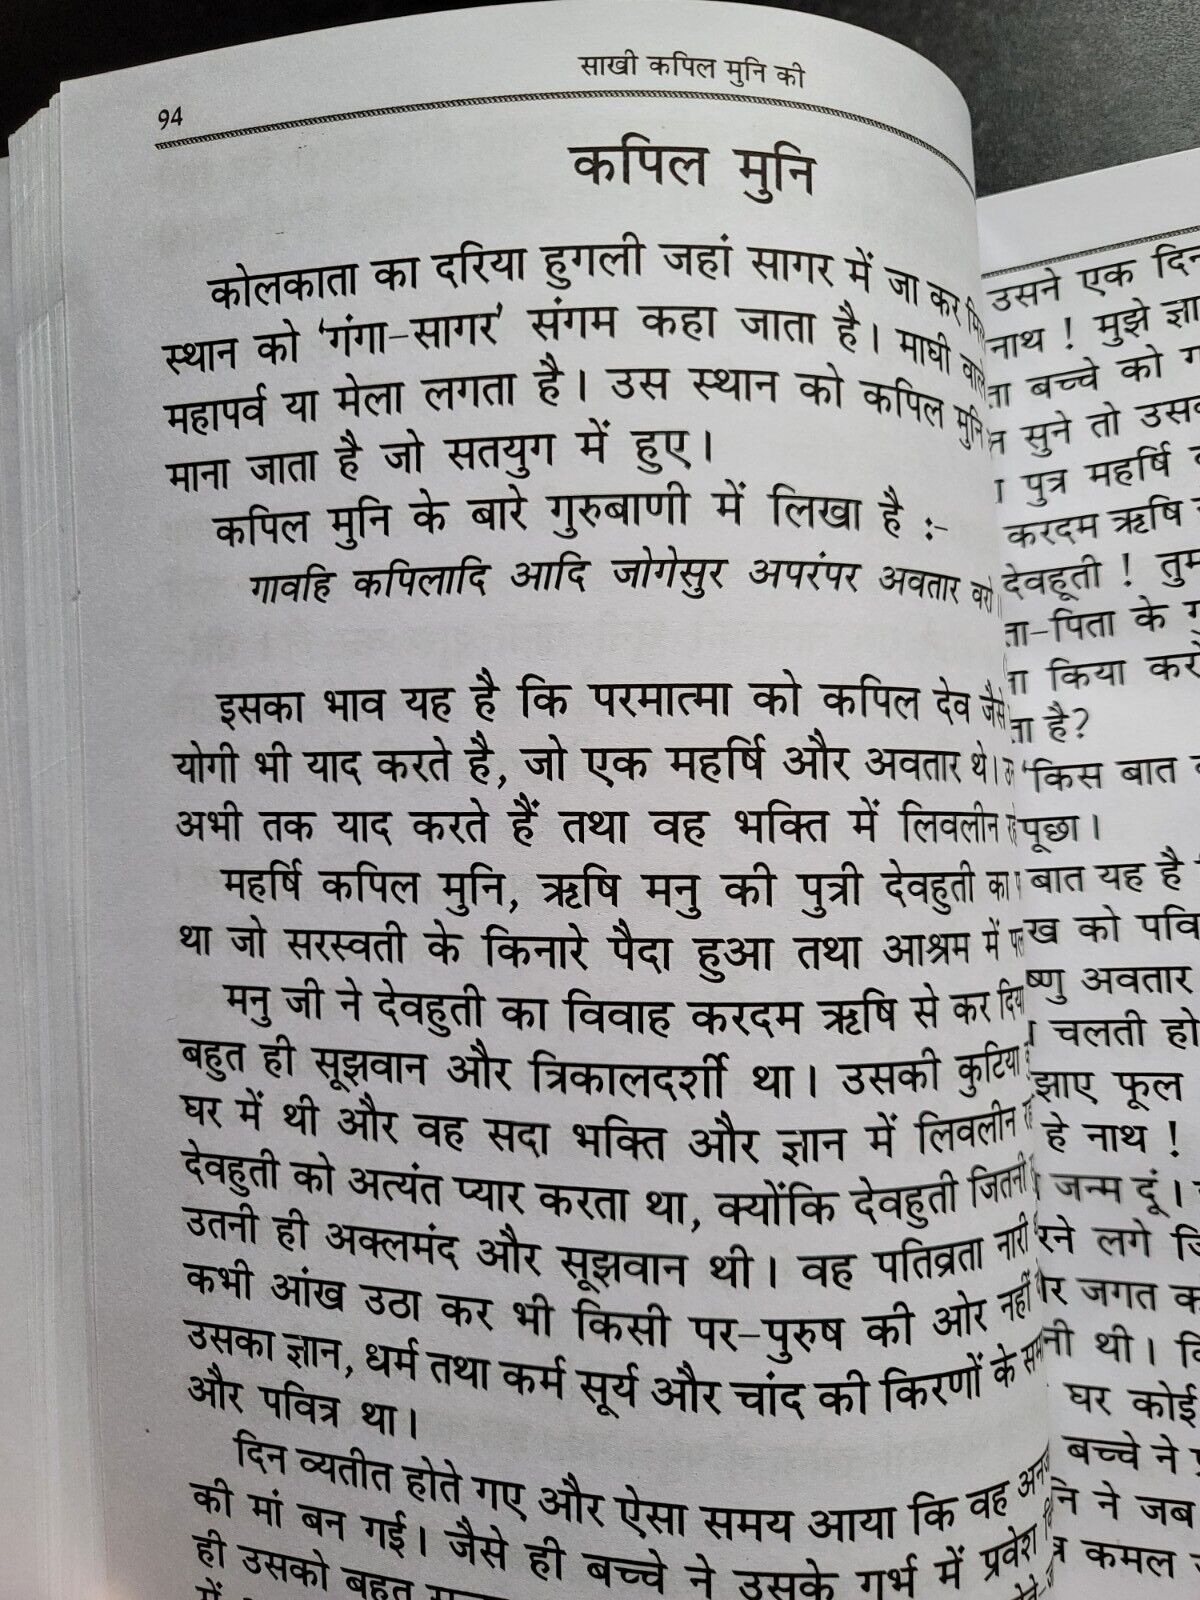 साखी कपिल मुनि की
94
कपिल मुनि
कोलकाता का दरिया हुगली जहां सागर में जा कर
स्थान को 'गंगा-सागर' संगम कहा जाता है। माघी वाले
महापर्व या मेला लगता है। उस स्थान को कपिल मुनि
माना जाता है जो सतयुग में हुए।
कपिल मुनि के बारे गुरुबाणी में लिखा है :-
गावहि कपिलादि आदि जोगेसुर अपरंपर अवतार वरो
इसका भाव यह है कि परमात्मा को कपिल देव जैसे
योगी भी याद करते है, जो एक महर्षि और अवतार थे।
अभी तक याद करते हैं तथा वह भक्ति में लिवलीन
महर्षि कपिल मुनि, ऋषि मनु की पुत्री देवहुती का
था जो सरस्वती के किनारे पैदा हुआ तथा आश्रम में
मनु जी ने देवहुती का विवाह करदम ऋषि से कर दिया
बहुत ही सूझवान और त्रिकालदर्शी था। उसकी कुटिया
घर में थी और वह सदा भक्ति और ज्ञान में लिवलीन
देवहुती को अत्यंत प्यार करता था, क्योंकि देवहुती जितनी
उतनी ही अक्लमंद और सूझवान थी। वह पतिव्रता नारी
कभी आंख उठा कर भी किसी पर-पुरुष की ओर नहीं
उसका ज्ञान, धर्म तथा कर्म सूर्य और चांद की किरणों के
और पवित्र था।
दिन व्यतीत होते गए और ऐसा समय आया कि वह
की मां बन गई। जैसे ही बच्चे ने उसके गर्भ में प्रवेश
ही उसको बहुत
उसने एक दिन
नाथ ! मुझे
बच्चे को
सुने तो
पुत्र महर्षि
करदम ऋषि
देवहूती ! तुम
ता-पिता के
किया
है?
'किस बात
पूछा।
बात यह है
को
अवतार
चलती हो
फूल
हे नाथ !
जन्म दूं।
लगे
जगत
थी।
घर कोई
बच्चे ने
ने जब
कमल